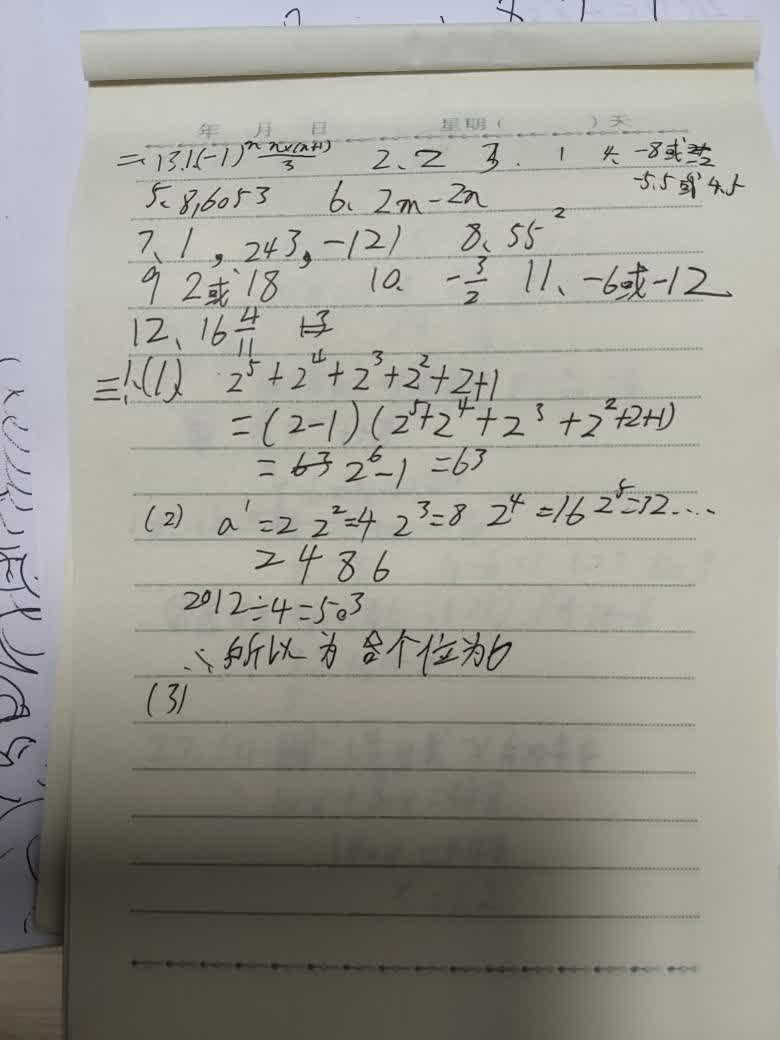 年 月 日 星期( )天
二、13.1(-1)^n n×(n+1)/3 2、2 3. 1 4、-8或-2
-5.5或4.5
5、8,6053 6、2m-2n
7、1,243,-121 8、55²
9 2或18 10、-3/2 11、-6或-12
12、16 4/11
三、1、(1) 2⁵+2⁴+2³+2²+2+1
=(2-1)(2⁵+2⁴+2³+2²+2+1)
=63 2⁶-1=63
(2) a¹=2 2²=4 2³=8 2⁴=16 2⁵=32……
2 4 8 6
2012÷4=503
∴所以为 个位为6
(3)